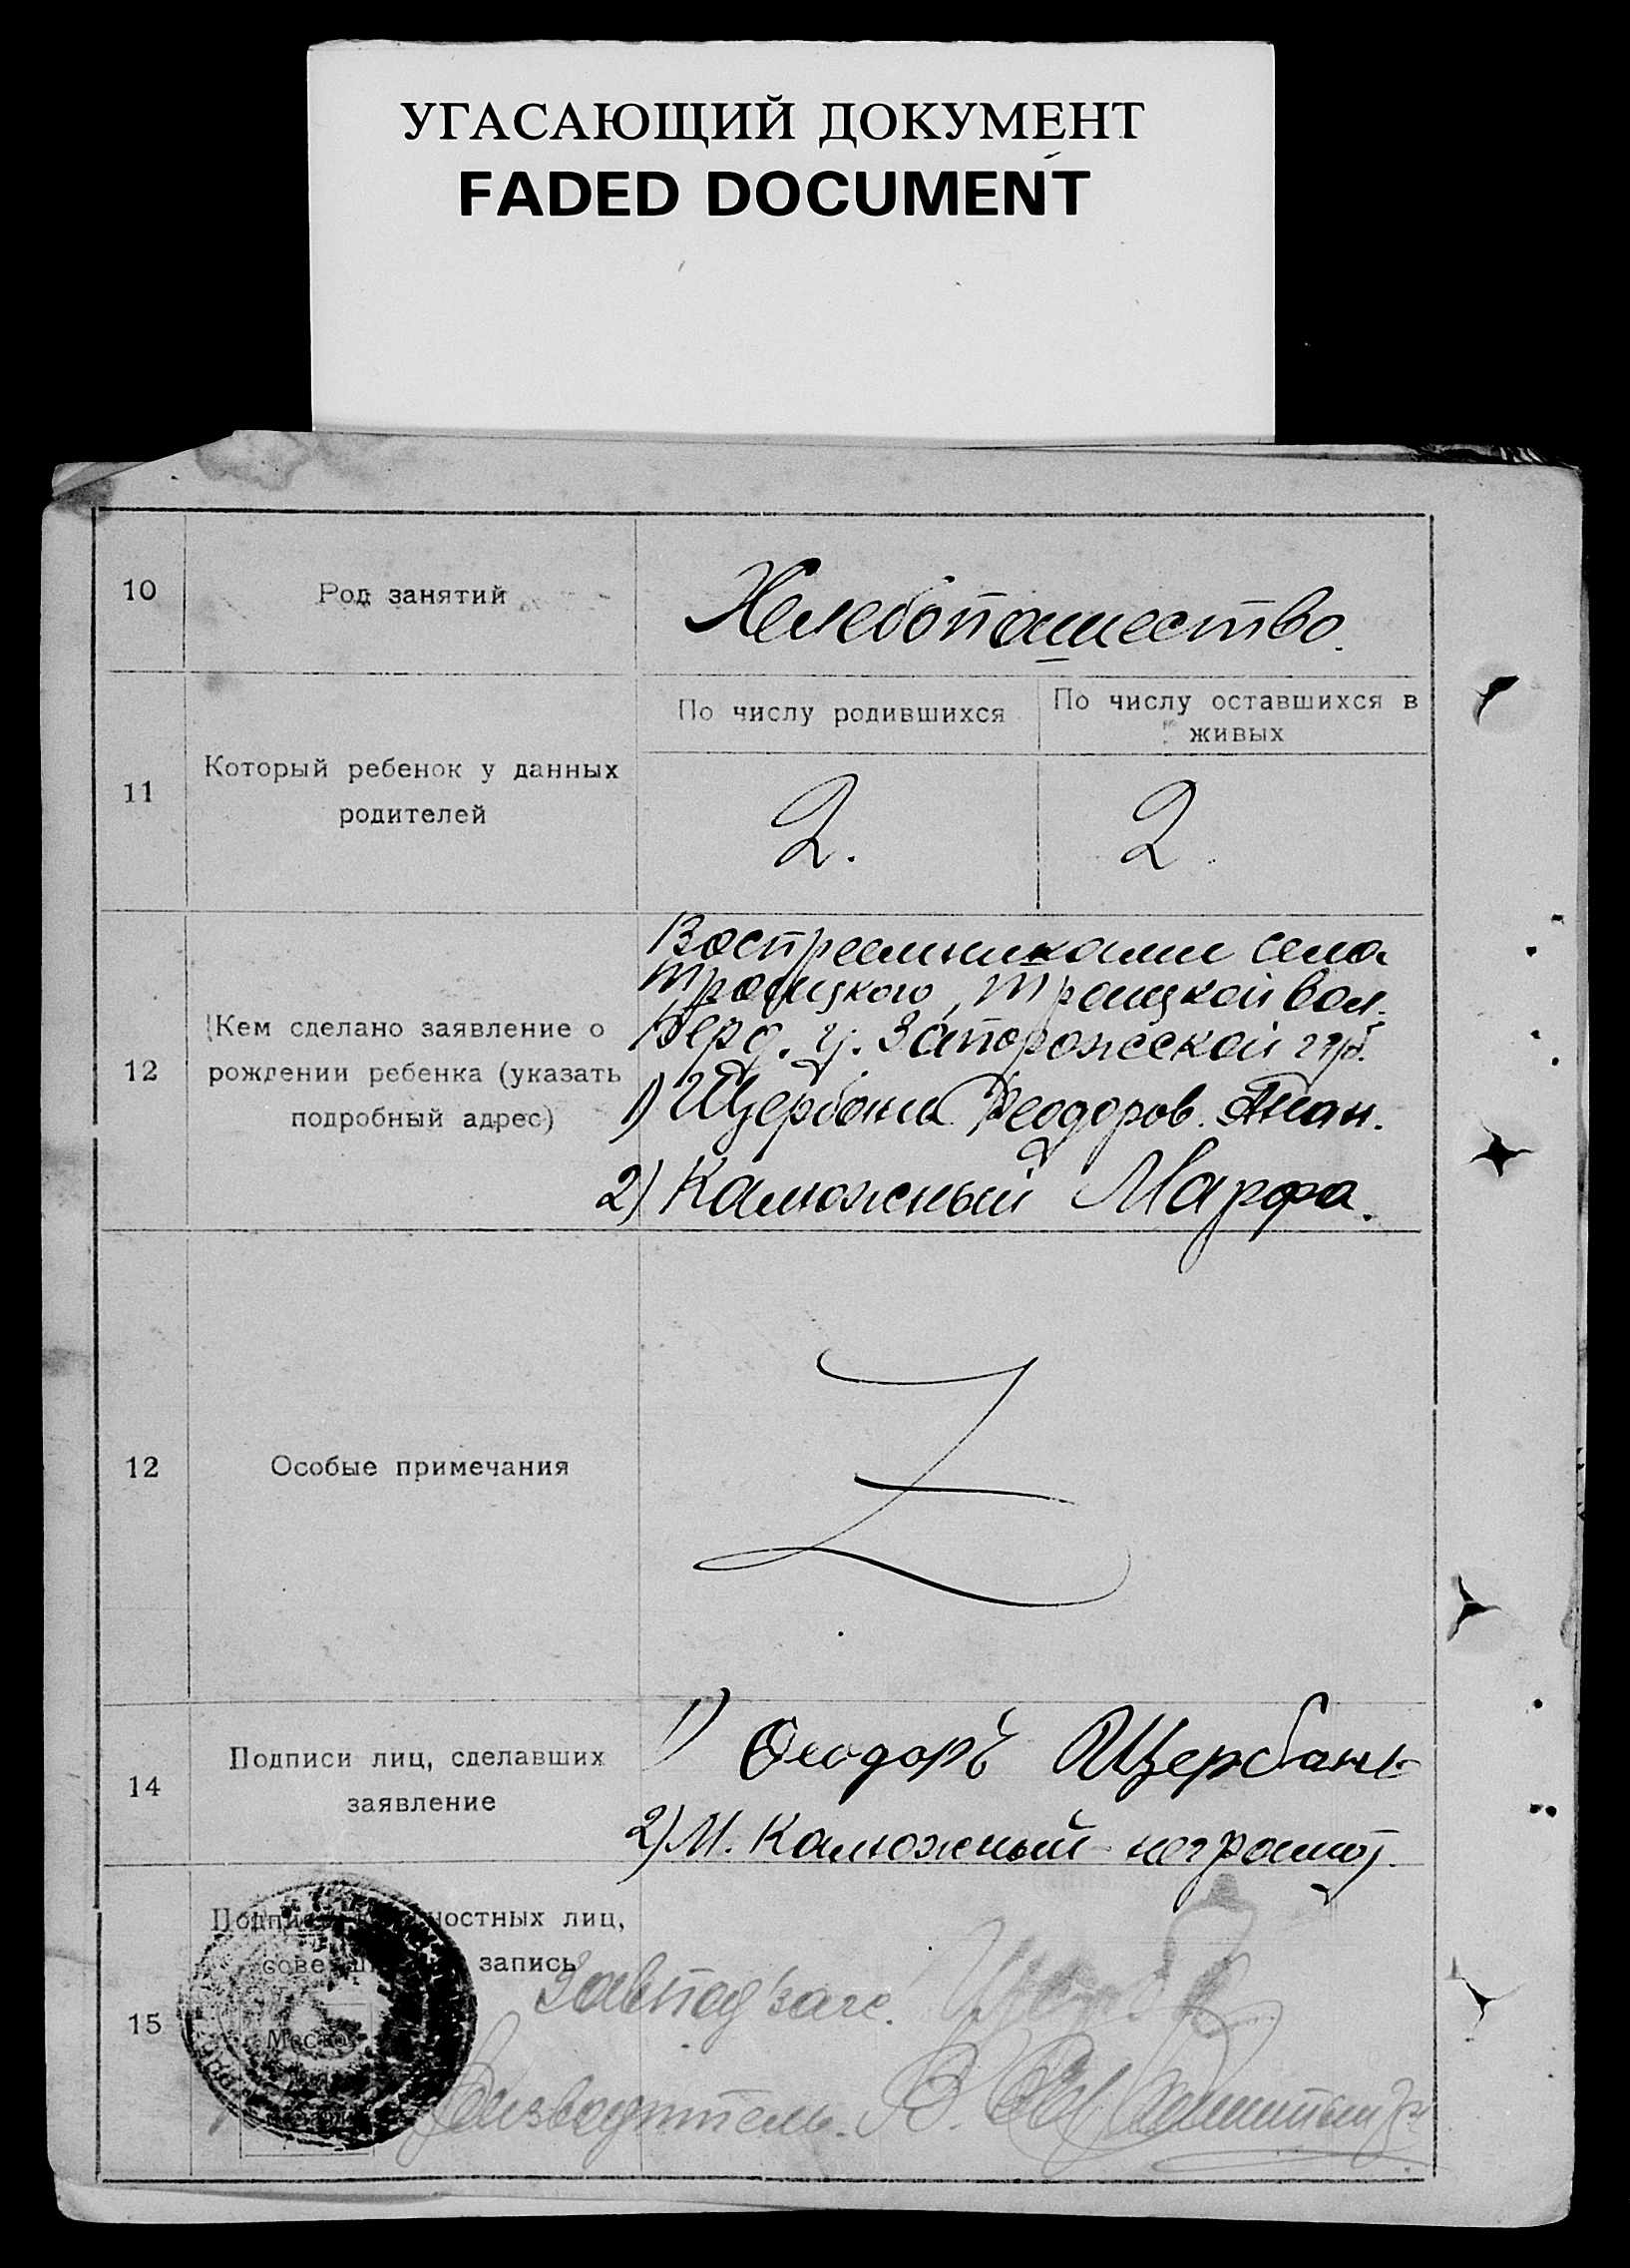 УГАСАЮЩИЙ ДОКУМЕНТ
FADED DOCUMENT
10
Род занятий
Хелебопашество.
11
Который ребенок у данных
родителей
По числу родившихся
По числу оставшихся в
живых
2.
2.
12
Кем сделано заявление о
рождении ребенка (указать
подробный адрес)
Воспреемниками села
Троицкого, Троицкой вол.
Берд. у. Запорожской губ.
1) Щербона Феодоров.
2) Калюжный Марфа.
12
Особые примечания
Z
14
Подписи лиц, сделавших
заявление
1) Ѳеодоръ Щербань
2) М. Калюжный неграмот.
15
Подписи должностных лиц,
запись
Место
Завподзагс.